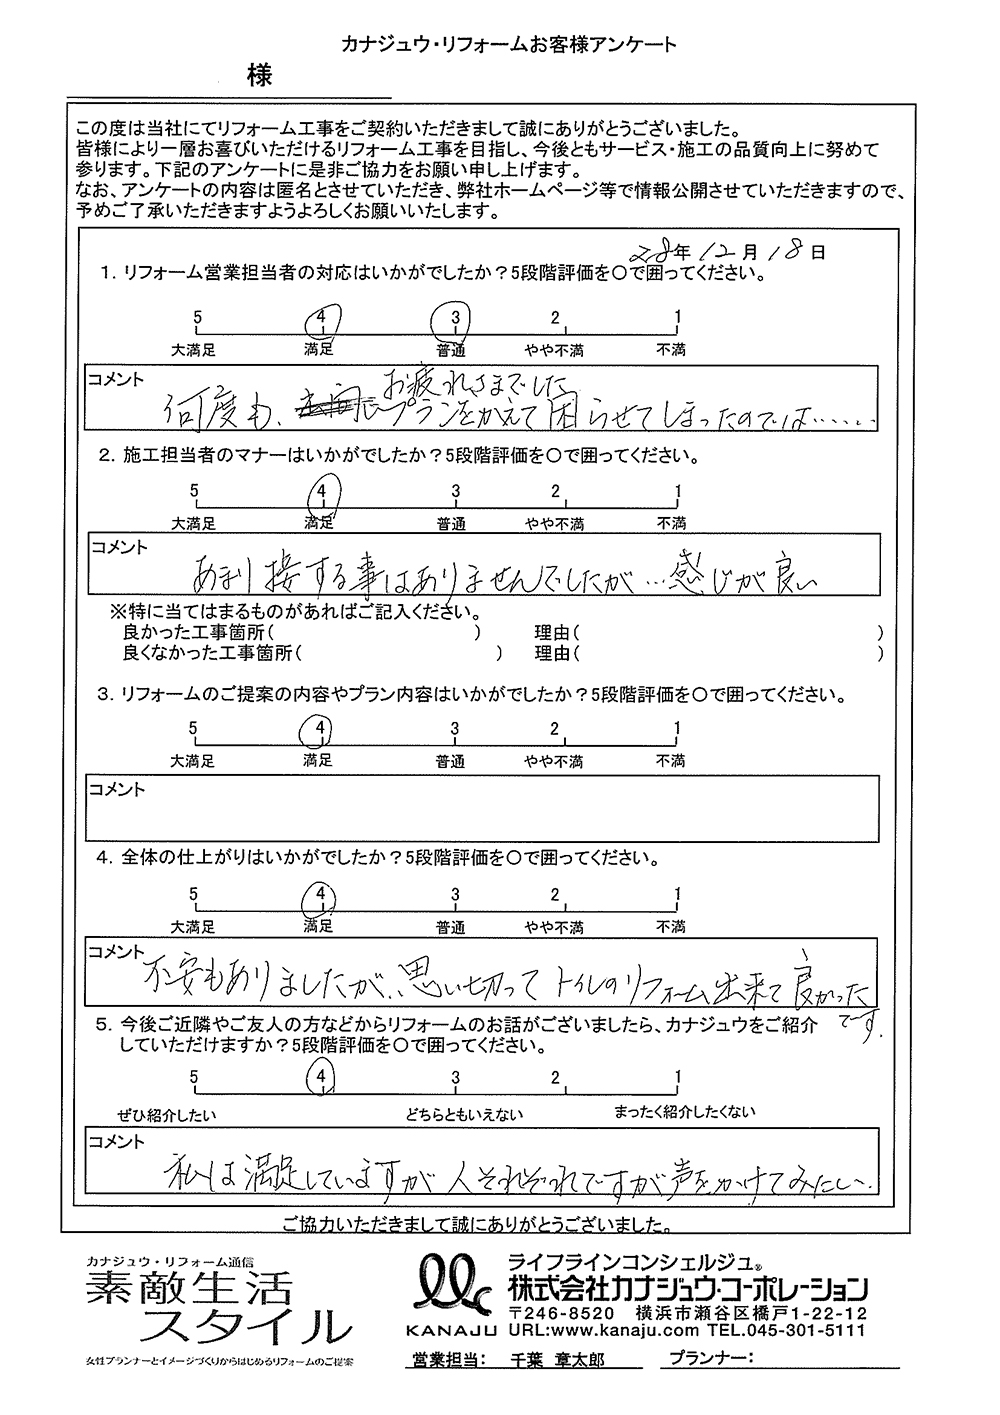 カナジュウ・リフォームお客様アンケート
様
この度は当社にてリフォーム工事をご契約いただきまして誠にありがとうございました。
皆様により一層お喜びいただけるリフォーム工事を目指し、今後ともサービス・施工の品質向上に努めて
参ります。下記のアンケートに是非ご協力をお願い申し上げます。
なお、アンケートの内容は匿名とさせていただき、弊社ホームページ等で情報公開させていただきますので、
予めご了承いただきますようよろしくお願いいたします。
28年12月18日
1．リフォーム営業担当者の対応はいかがでしたか？5段階評価を〇で囲ってください。
5 4 3 2 1
大満足 満足 普通 やや不満 不満
コメント
お疲れさまでした
何度も、プランをかえて困らせてしまったのでは……
2．施工担当者のマナーはいかがでしたか？5段階評価を〇で囲ってください。
5 4 3 2 1
大満足 満足 普通 やや不満 不満
コメント
あまり接する事はありませんでしたが…感じが良い
※特に当てはまるものがあればご記入ください。
良かった工事箇所（ ） 理由（ ）
良くなかった工事箇所（ ） 理由（ ）
3．リフォームのご提案の内容やプラン内容はいかがでしたか？5段階評価を〇で囲ってください。
5 4 3 2 1
大満足 満足 普通 やや不満 不満
コメント
4．全体の仕上がりはいかがでしたか？5段階評価を〇で囲ってください。
5 4 3 2 1
大満足 満足 普通 やや不満 不満
コメント
不安もありましたが、思い切ってトイレのリフォーム出来て良かった
です.
5．今後ご近隣やご友人の方などからリフォームのお話がございましたら、カナジュウをご紹介
していただけますか？5段階評価を〇で囲ってください。
5 4 3 2 1
ぜひ紹介したい どちらともいえない まったく紹介したくない
コメント
私は満足していますが人それぞれですが声をかけてみたい.
ご協力いただきまして誠にありがとうございました。
カナジュウ・リフォーム通信
素敵生活
スタイル
女性プランナーとイメージづくりからはじめるリフォームのご提案
KANAJU
ライフラインコンシェルジュ®
株式会社カナジュウ・コーポレーション
〒246-8520 横浜市瀬谷区橋戸1-22-12
URL:www.kanaju.com TEL.045-301-5111
営業担当： 千葉 章太郎 プランナー：